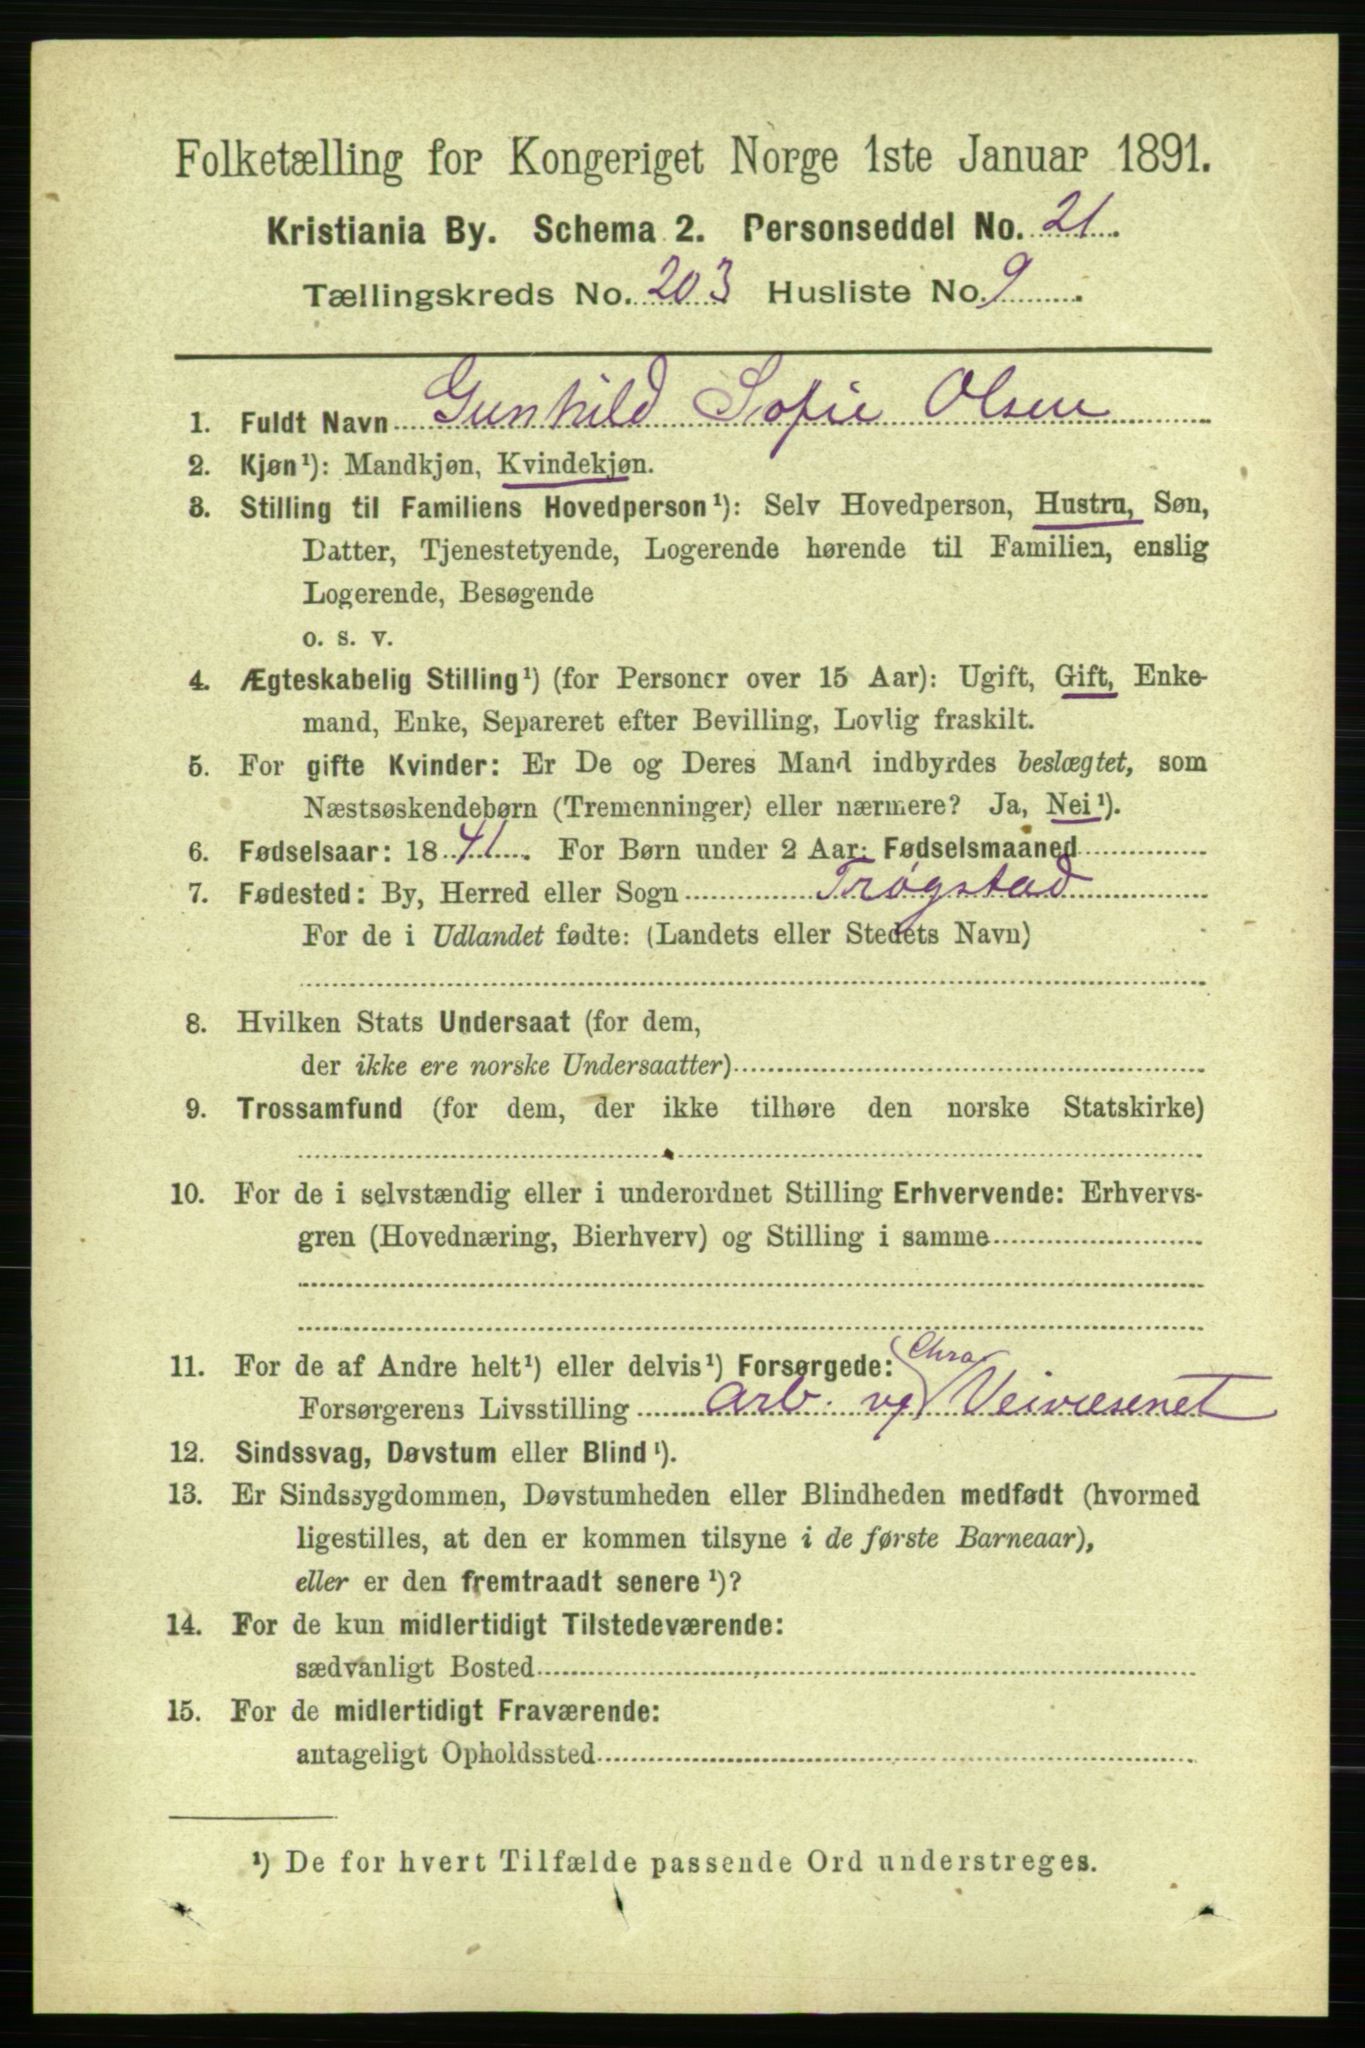 Folketælling for Kongeriget Norge 1ste Januar 1891.
Kristiania By. Schema 2. Personseddel No. 21.
Tællingskreds No. 203 Husliste No. 9.
1. Fuldt Navn Gunhild Sofie Olsen
2. Kjøn¹): Mandkjøn, Kvindekjøn.
3. Stilling til Familiens Hovedperson¹): Selv Hovedperson, Hustru, Søn,
Datter, Tjenestetyende, Logerende hørende til Familien, enslig
Logerende, Besøgende
o. s. v.
4. Ægteskabelig Stilling¹) (for Personer over 15 Aar): Ugift, Gift, Enke-
mand, Enke, Separeret efter Bevilling, Lovlig fraskilt.
5. For gifte Kvinder: Er De og Deres Mand indbyrdes beslægtet, som
Næstsøskendebørn (Tremenninger) eller nærmere? Ja, Nei¹).
6. Fødselsaar: 1841. For Børn under 2 Aar: Fødselsmaaned
7. Fødested: By, Herred eller Sogn Trøgstad
For de i Udlandet fødte: (Landets eller Stedets Navn)
8. Hvilken Stats Undersaat (for dem,
der ikke ere norske Undersaatter)
9. Trossamfund (for dem, der ikke tilhøre den norske Statskirke)
10. For de i selvstændig eller i underordnet Stilling Erhvervende: Erhvervs-
gren (Hovednæring, Bierhverv) og Stilling i samme
11. For de af Andre helt¹) eller delvis¹) Forsørgede:
Chra
Forsørgerens Livsstilling arb. v. Veivæsenet
12. Sindssvag, Døvstum eller Blind¹).
13. Er Sindssygdommen, Døvstumheden eller Blindheden medfødt (hvormed
ligestilles, at den er kommen tilsyne i de første Barneaar),
eller er den fremtraadt senere¹)?
14. For de kun midlertidigt Tilstedeværende:
sædvanligt Bosted
15. For de midlertidigt Fraværende:
antageligt Opholdssted
¹) De for hvert Tilfælde passende Ord understreges.